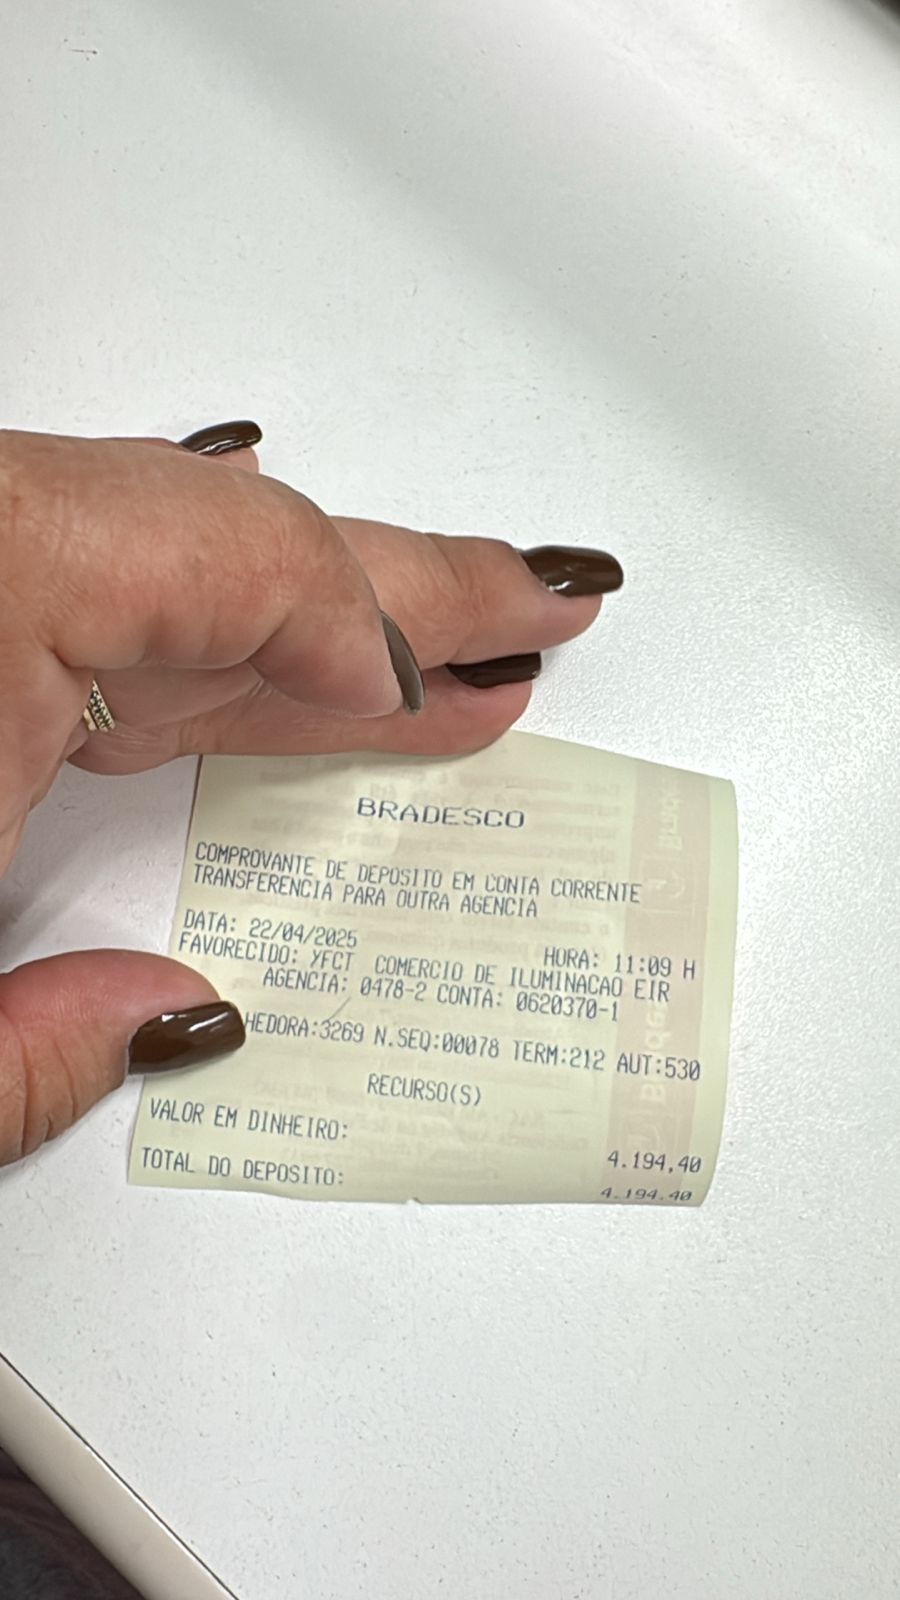 BRADESCO
COMPROVANTE DE DEPOSITO EM CONTA CORRENTE
TRANSFERENCIA PARA OUTRA AGENCIA
DATA: 22/04/2025 HORA: 11:09 H
FAVORECIDO: YFCT COMERCIO DE ILUMINACAO EIR
AGENCIA: 0478-2 CONTA: 0620370-1
HEDORA:3269 N.SEQ:00078 TERM:212 AUT:530
RECURSO(S)
VALOR EM DINHEIRO: 4.194,40
TOTAL DO DEPOSITO: 4.194.40